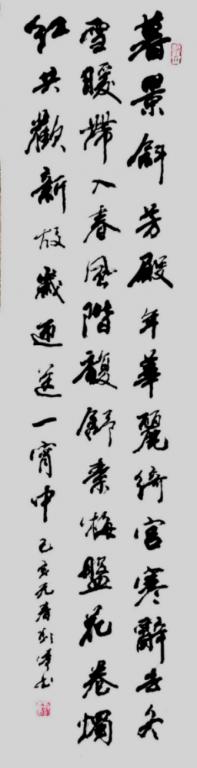 暮景斜芳殿年華麗綺宮寒辭去冬
雪暖帶入春風階馥舒素梅盤花卷燭
紅共歡新故歲迎送一宵中 己亥元春